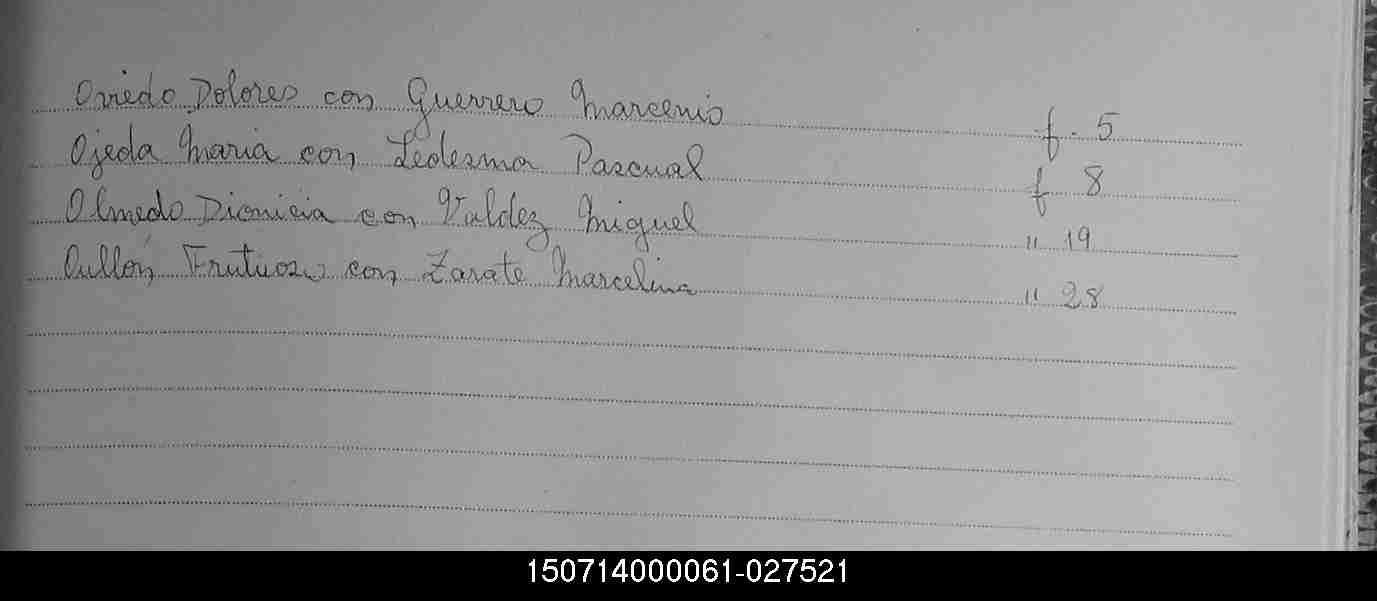 Oviedo Dolores con Guerrero Marcenio f. 5
Ojeda Maria con Ledesma Pascual f 8
Olmedo Dionicia con Valdez Miguel " 19
Oullón Frutuoso con Zarate Marcelina " 28
150714000061-027521